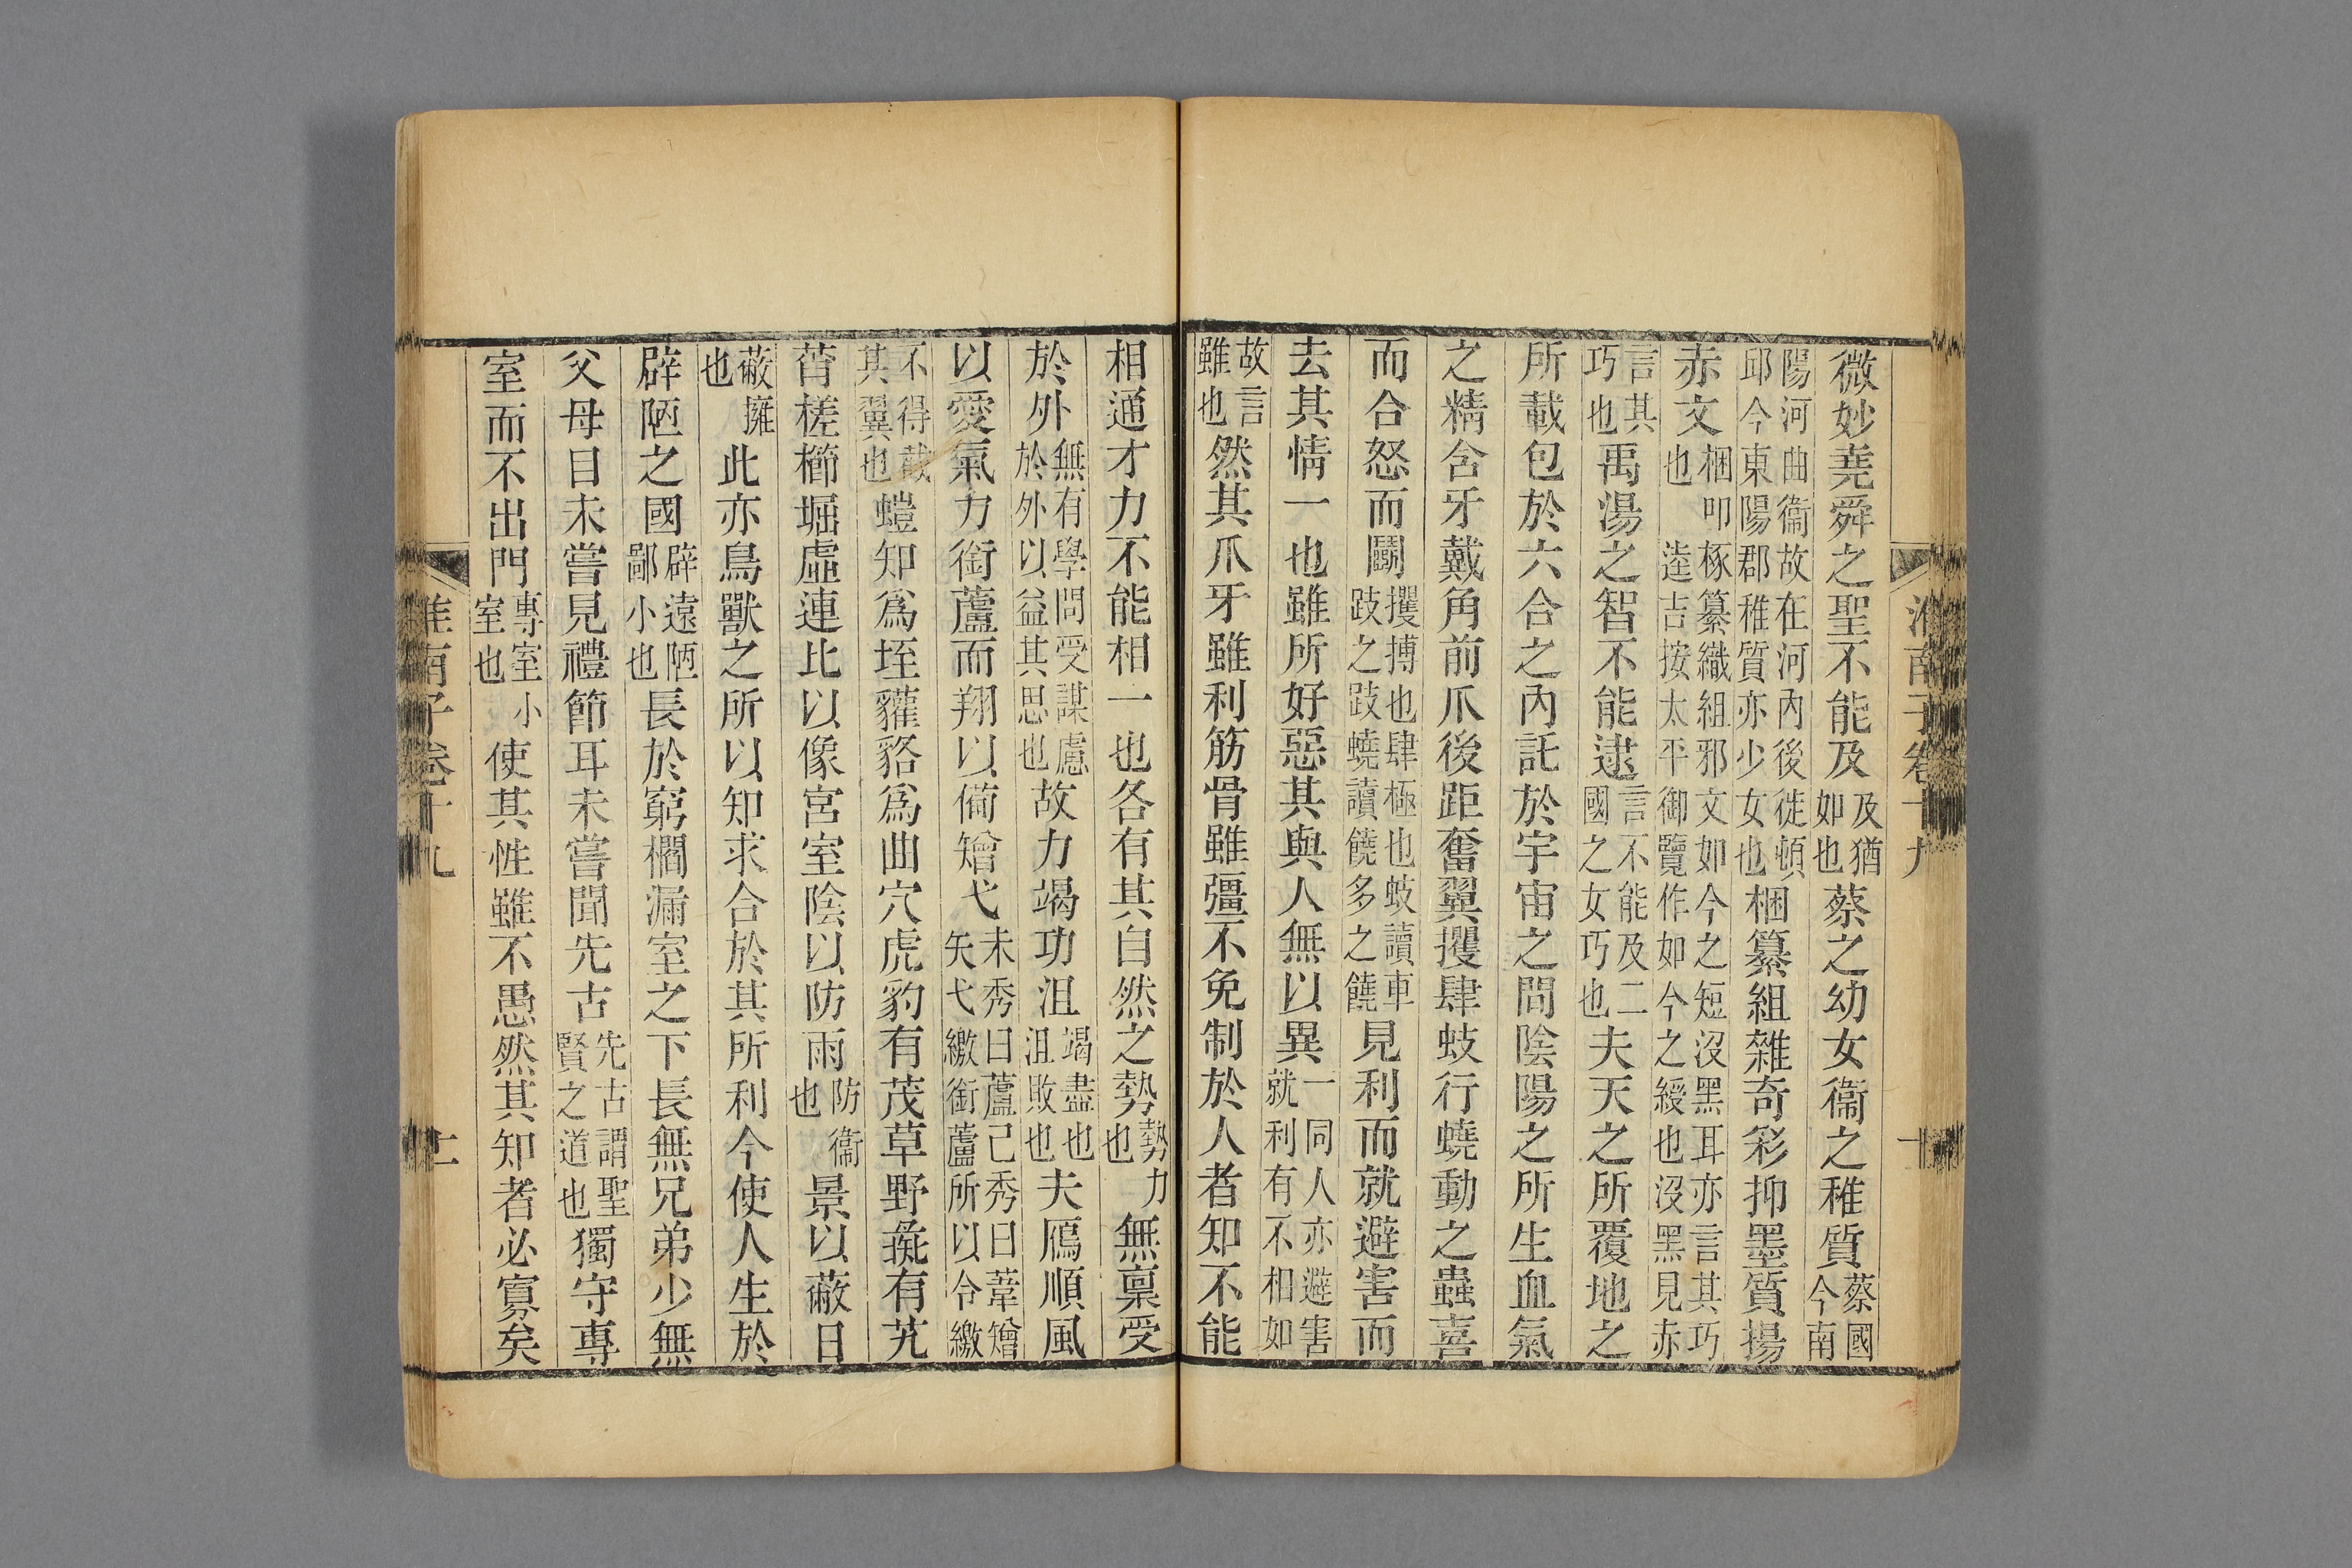 淮南子卷十九　十
微妙堯舜之聖不能及及猶如也蔡之幼女衞之稚質蔡國今南
陽河曲衞故在河內後徙頓邱今東陽郡稚質亦少女也梱纂組雜奇彩抑墨質揚
赤文梱叩椓纂織組邪文如今之短沒黑耳亦言其巧也逵吉按太平御覽作如今之綬也沒黑見赤
言其巧也禹湯之智不能逮言不能及二國之女巧也夫天之所覆地之
所載包於六合之內託於宇宙之間陰陽之所生血氣
之精含牙戴角前爪後距奮翼攫肆蚑行蟯動之蟲喜
而合怒而鬬攫搏也肆極也蚑讀車跂之跂蟯讀饒多之饒見利而就避害而
去其情一也雖所好惡其與人無以異一同人亦避害就利有不相如
故言雖也然其爪牙雖利筋骨雖彊不免制於人者知不能
相通才力不能相一也各有其自然之勢勢力也無稟受
於外無有學問受謀慮於外以益其思也故力竭功沮竭盡也沮敗也夫鴈順風
以愛氣力銜蘆而翔以備矰弋未秀曰蘆已秀曰葦矰矢弋繳銜蘆所以令繳
不得截其翼也螘知爲垤貛貉爲曲穴虎豹有茂草野彘有艽
莦槎櫛堀虛連比以像宮室陰以防雨防衞也景以蔽日
蔽擁也此亦鳥獸之所以知求合於其所利今使人生於
辟陋之國辟遠陋鄙小也長於窮櫩漏室之下長無兄弟少無
父母目未嘗見禮節耳未嘗聞先古先古謂聖賢之道也獨守專
室而不出門專室小室也使其性雖不愚然其知者必寡矣
淮南子卷十九　十一